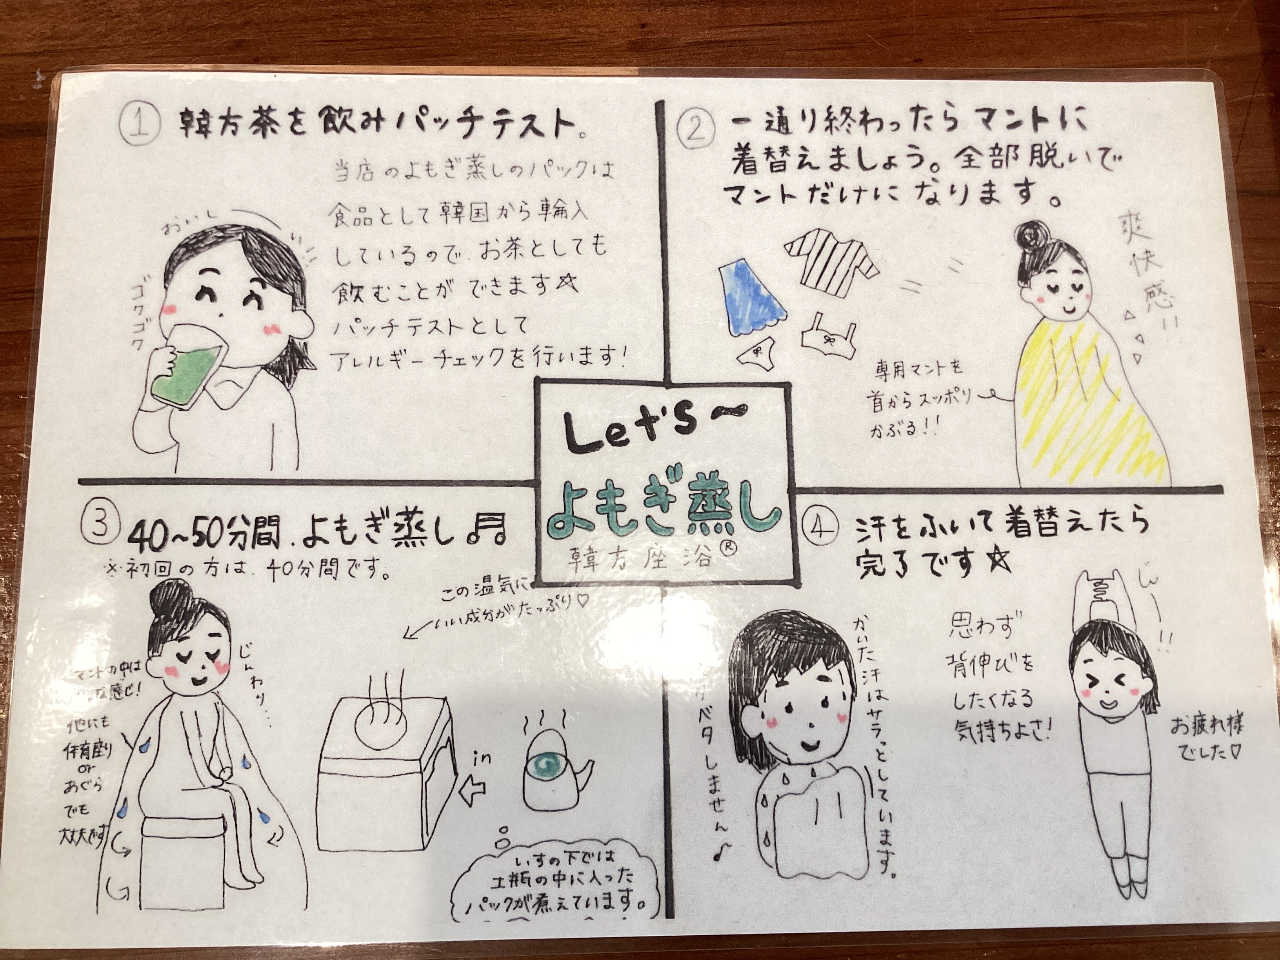 ① 韓方茶を飲みパッチテスト。
当店のよもぎ蒸しのパックは
食品として韓国から輸入
しているので、お茶としても
飲むことができます☆
パッチテストとして
アレルギーチェックを行います!
おいしい
ゴクゴク
② 一通り終わったらマントに
着替えましょう。全部脱いで
マントだけになります。
爽快感!!
専用マントを
首からスッポリ
かぶる!!
Let's〜
よもぎ蒸し
韓方座浴®
③ 40~50分間、よもぎ蒸し♬
※初回の方は、40分間です。
この温気に
いい成分がたっぷり♡
じんわり…
マントの中は
な感じ!
他にも
体育座り
or
あぐら
でも
大丈夫です
in
いすの下では
土瓶の中に入った
パックが煮えています。
④ 汗をふいて着替えたら
完了です☆
かいた汗はサラッとしています。
ベタしません♪
思わず
背伸びを
したくなる
気持ちよさ!
んーー!!
お疲れ様
でした♡